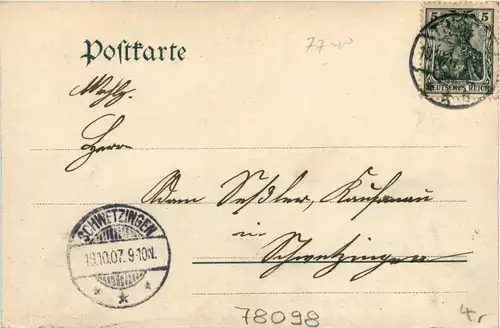 Postkarte
77
5 5
DEUTSCHES REICH
Wohlg.
Herrn
Adam Seßler, Kaufmann
in
Schwetzingen
SCHWETZINGEN
19.10.07. 9-10N.
78098